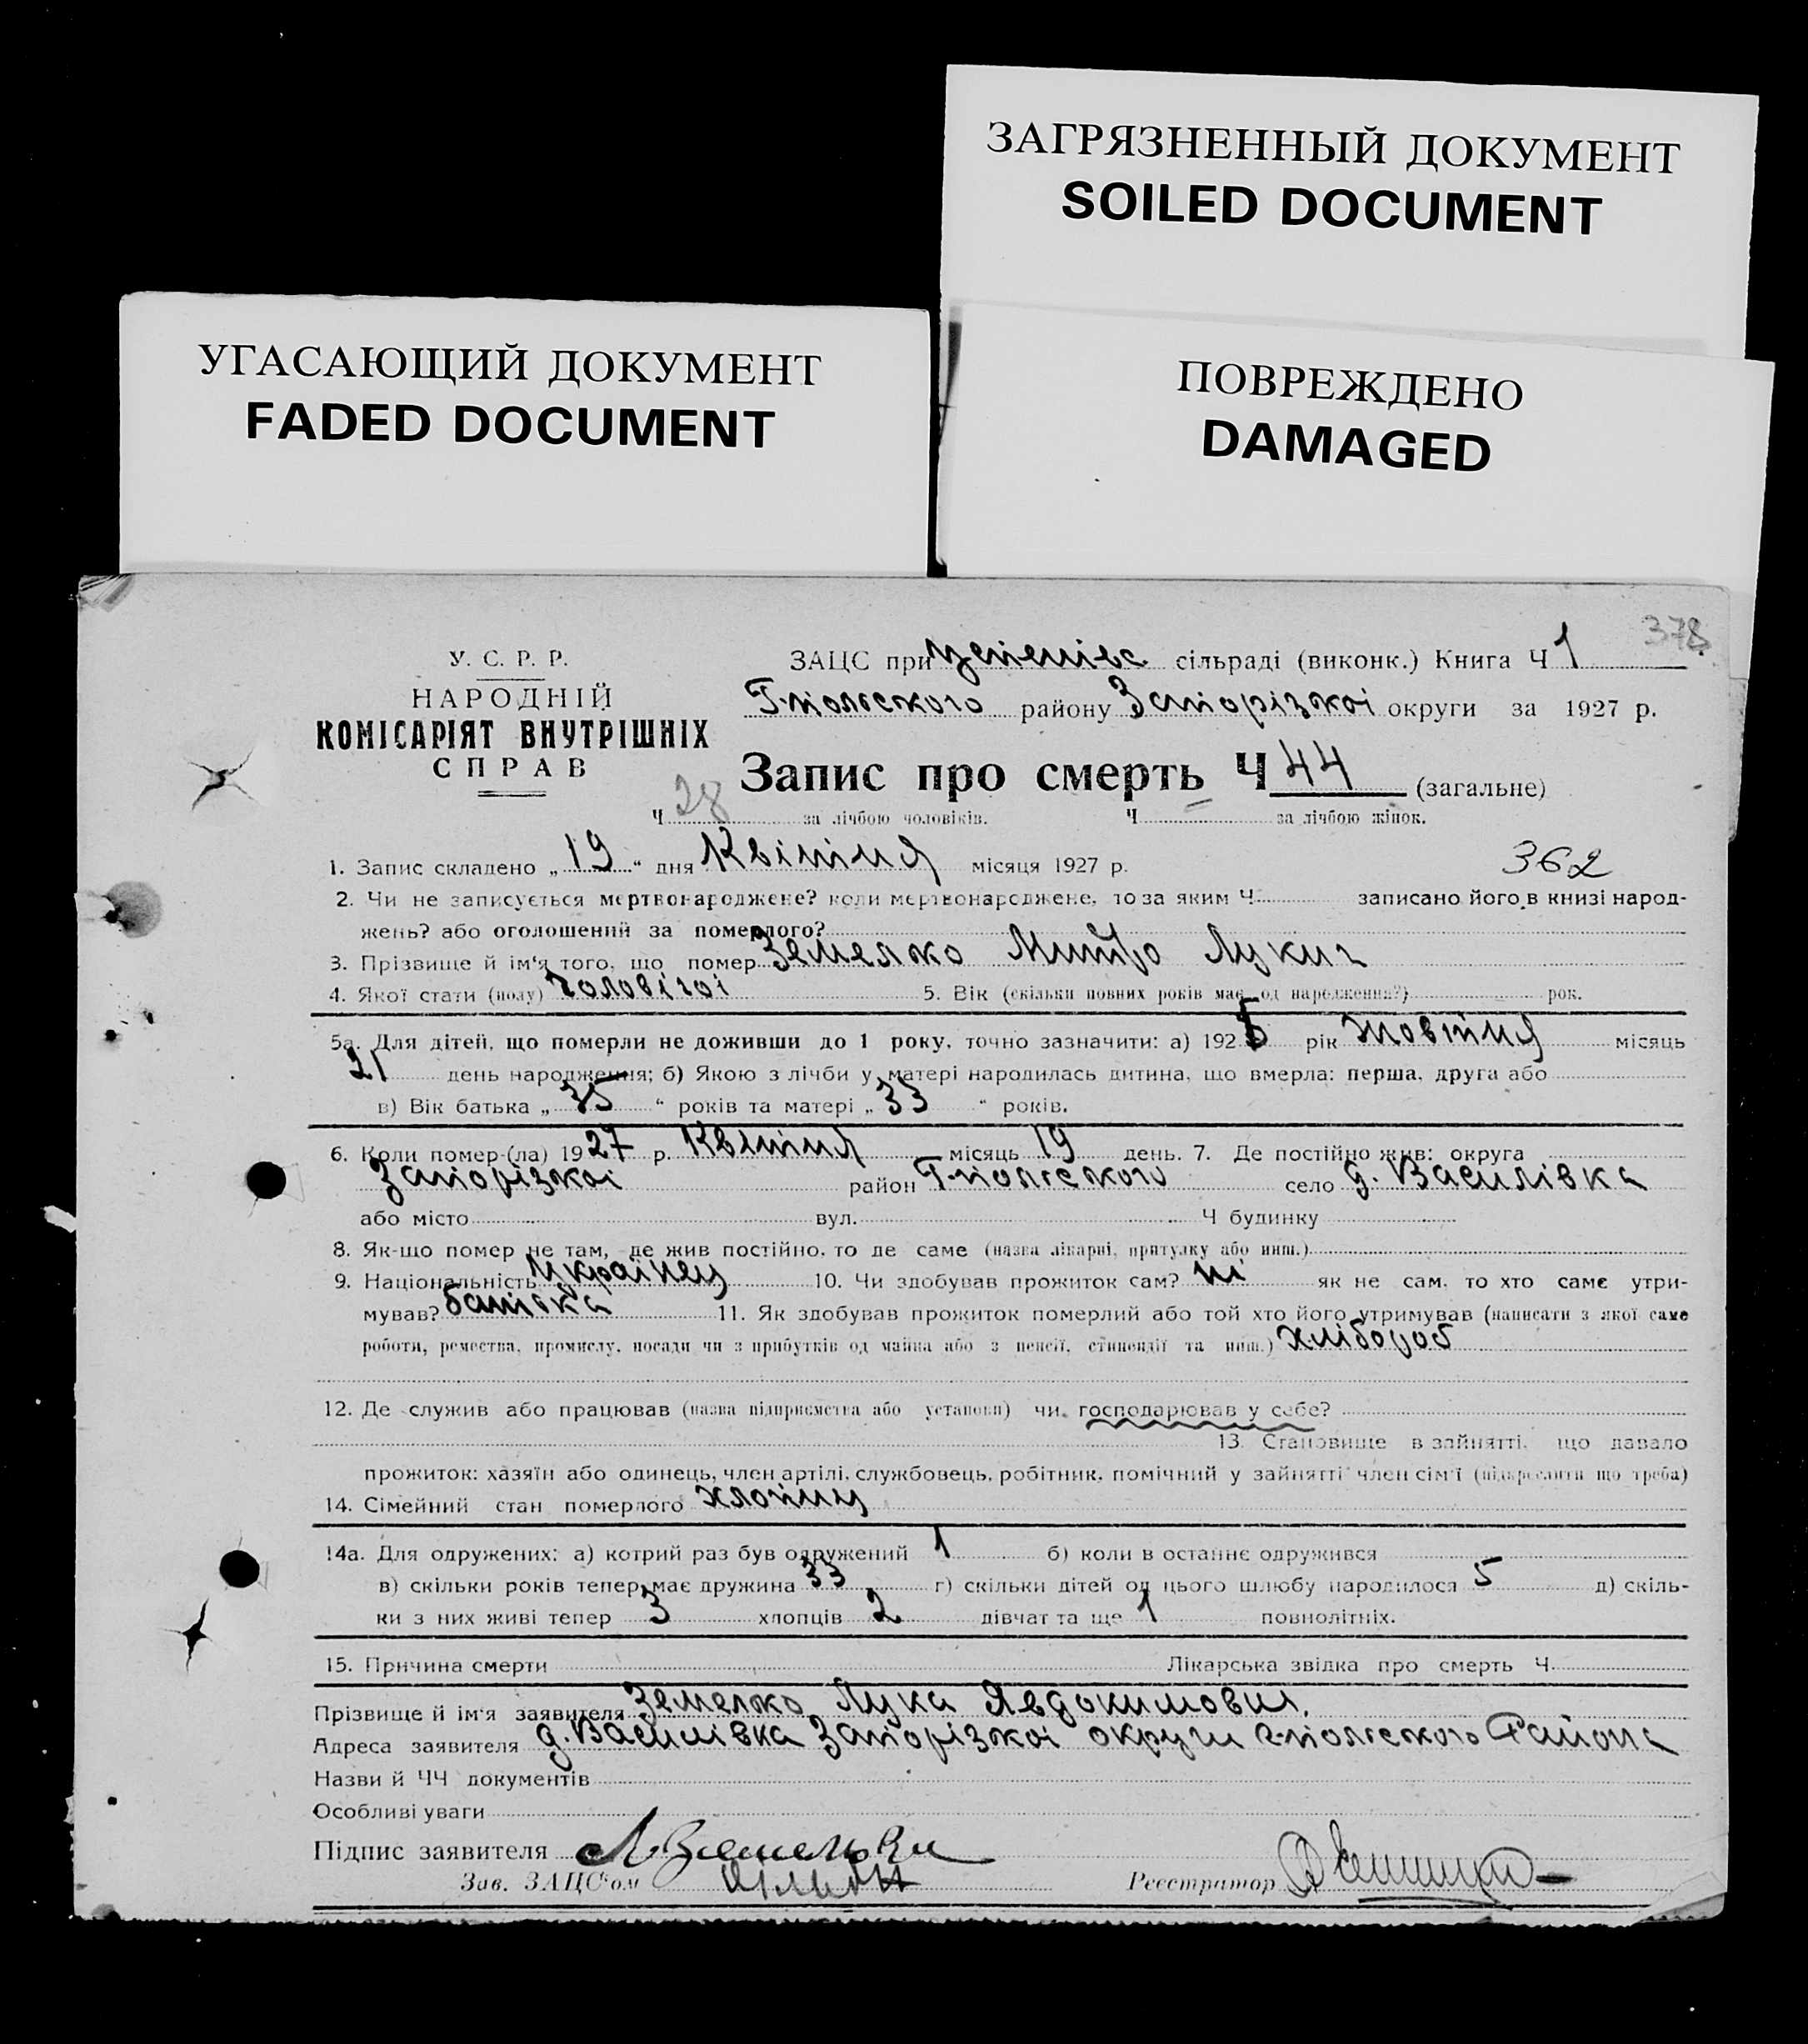 ЗАГРЯЗНЕННЫЙ ДОКУМЕНТ
SOILED DOCUMENT
УГАСАЮЩИЙ ДОКУМЕНТ
FADED DOCUMENT
ПОВРЕЖДЕНО
DAMAGED
378
У. С. Р. Р.
НАРОДНІЙ
КОМІСАРІЯТ ВНУТРІШНІХ
СПРАВ
ЗАЦС при сільраді (виконк.) Книга Ч 1
району Запорізкоі округи за 1927 р.
Запис про смерть Ч 44 (загальне)
Ч 28 за лічбою чоловіків. Ч за лічбою жінок.
1. Запис складено „ 19 “ дня Квітня місяця 1927 р.
362
2. Чи не записується мертвонароджене? коли мертвонароджене, то за яким Ч записано його в книзі народ-
жень? або оголошений за померлого?
3. Прізвище й ім'я того, що помер Земелко Митро Лукич
4. Якої стати (полу) чоловічоі 5. Вік (скільки повних років має од народження?) рок.
5а. Для дітей, що померли не доживши до 1 року, точно зазначити: а) 192 рік Жовтня місяць
21 день народження; б) Якою з лічби у матері народилась дитина, що вмерла: перша, друга або
в) Вік батька „ 35 “ років та матері „ 33 “ років.
6. Коли помер-(ла) 1927 р. Квітня місяць 19 день. 7. Де постійно жив: округа
Запорізкоі район село д. Василівка
або місто вул. Ч будинку
8. Як-що помер не там, де жив постійно, то де саме (назва лікарні, притулку або инш.)
9. Національність Украінец 10. Чи здобував прожиток сам? ні як не сам, то хто саме утри-
мував? батька 11. Як здобував прожиток померлий або той хто його утримував (написати з якої саме
роботи, ремества, промислу, посади чи з прибутків од майна або з пенсії, стипендії та инш.) хлібороб
12. Де служив або працював (назва підприємства або установи) чи господарював у себе?
13. Становище в зайнятті, що давало
прожиток: хазяїн або одинець, член артілі, службовець, робітник, помічний у зайнятті член сім'ї (підкреслити що треба)
14. Сімейний стан померлого хлопиц
14а. Для одружених: а) котрий раз був одружений 1 б) коли в останнє одружився
в) скільки років тепер має дружина 33 г) скільки дітей од цього шлюбу народилося 5 д) скіль-
ки з них живі тепер 3 хлопців 2 дівчат та ще 1 повнолітніх.
15. Причина смерти Лікарська звідка про смерть Ч
Прізвище й ім'я заявителя Земелко Лука Явдокимович.
Адреса заявителя д. Василівка Запорізкоі округи Района
Назви й ЧЧ документів
Особливі уваги
Підпис заявителя
Зав. ЗАЦС'ом Реєстратор